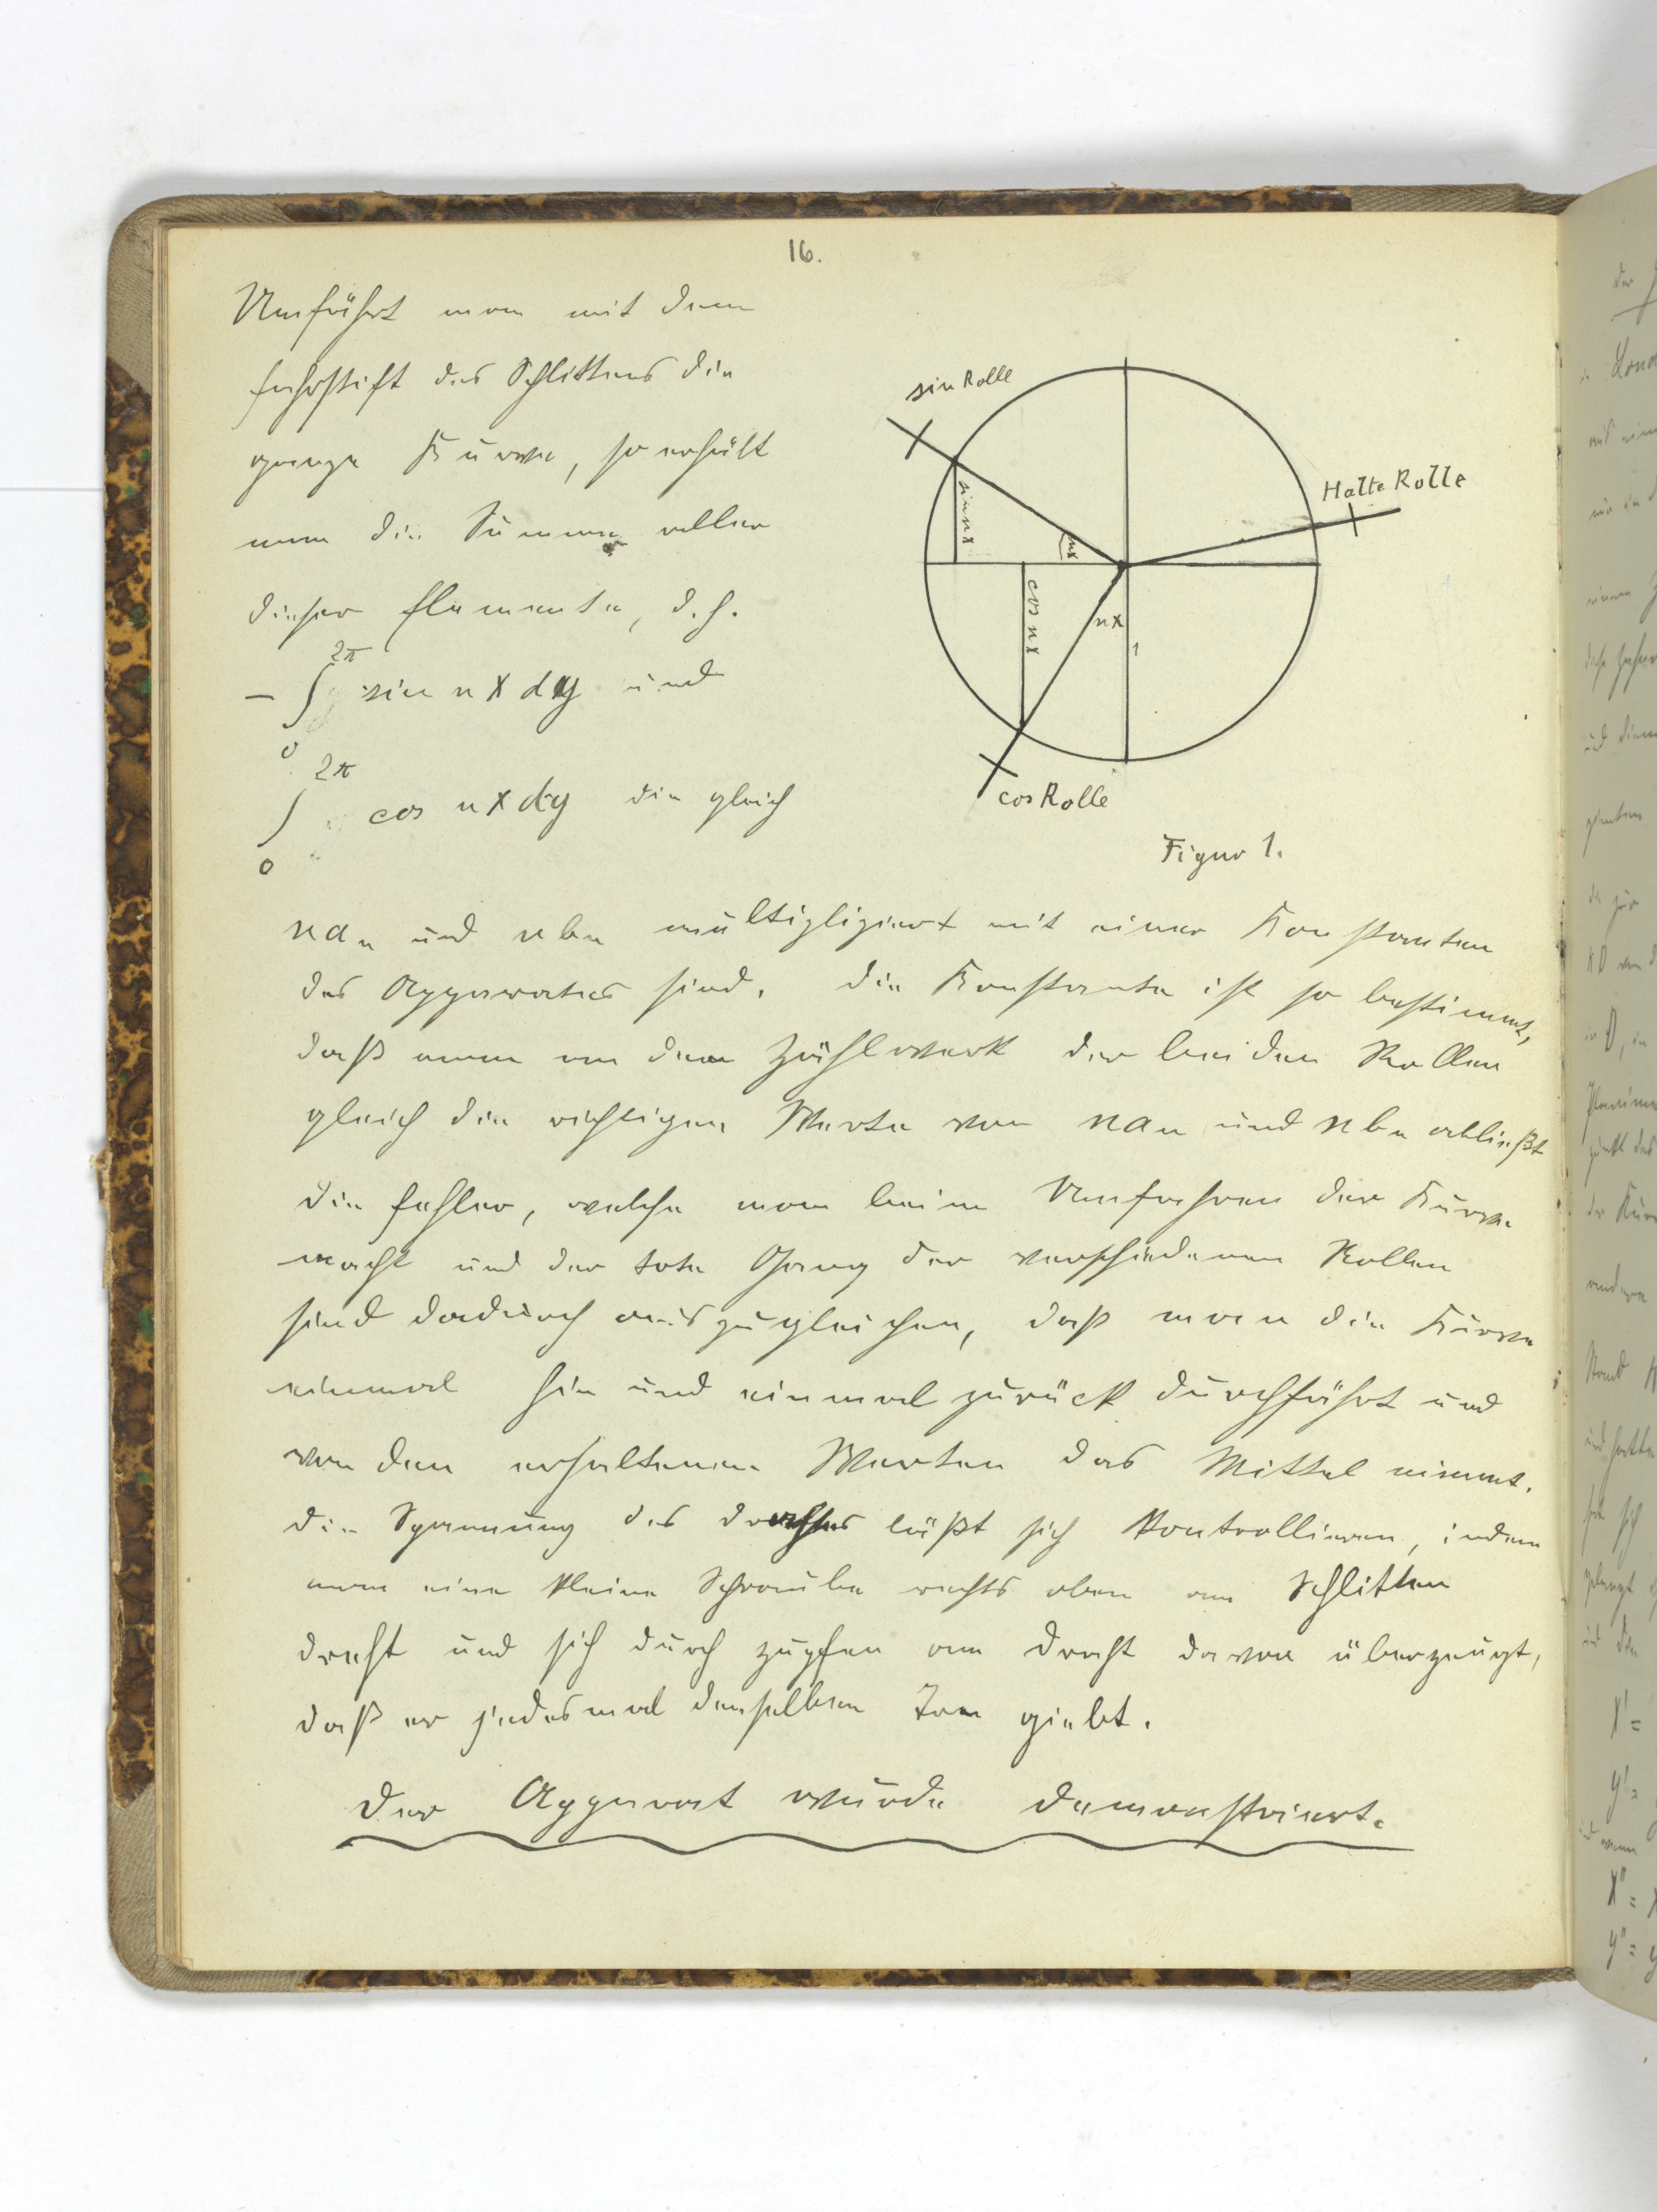 16.
Umfährt man mit dem
Fahrstift des Schlittens die
ganze Kurve, so erhält
man die Summe aller
dieser Elemente, d. h.
− ∫₀^2π sin nx dy und
∫₀^2π cos nx dy die gleich
sin Rolle
Halte Rolle
sin nx
nx
cos nx
nx
1
cos Rolle
Figur 1.
naₙ und nbₙ multipliziert mit einer Konstanten
des Apparates sind. Die Konstante ist so bestimmt,
daß man an dem Zählwerk der beiden Rollen
gleich die richtigen Werte von naₙ und nbₙ abließt
Die Fehler, welche man beim Umfahren der Kurve
macht und der tote Gang der verschiedenen Rollen
sind dadurch auszugleichen, daß man die Kurve
einmal hin und einmal zurück durchfährt und
von den erhaltenen Werten das Mittel nimmt.
Die Spannung des Drahtes läßt sich kontrollieren, indem
man eine kleine Schraube rechts oben am Schlitten
dreht und sich durch zupfen am Draht davon überzeugt,
daß er jedesmal denselben Ton giebt.
Der Apparat wurde demonstriert.